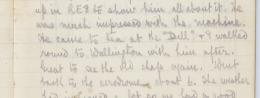 up in R.E.8 to show him all about it. He
was much impressed with the machine.
He came to tea at the "Dell" & I walked
round to Wallington with him after.
Great to see the old chaps again. Went
back to the aerodrome about 6. The weather
had improved a lot so we had a good